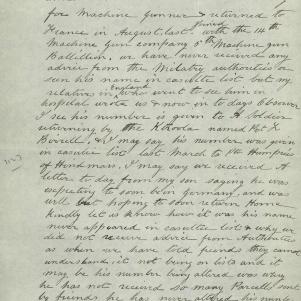 for Machine gunner & returned to
France in August last joined with the 14th
Machine gun company 5th Machine gun
Battillion, we have never received any
advice from the Military authorities or
seen his name in casulte list but my
relative in England who went to see him in
hospital wrote us & now in to days Observer
I see his number is given to A Soldier
returning by the Karoola named
Borrell, & I may say his number was given
in casulte list last March to Pte Humphries
of Hindmarsh, I may say we received A
letter to day from my son saying he was
expecting to soon been Germany and was
well but hoping to soon return Home
kindly let us know how it was his name
never appeared in casulte list & why we
did not receive advice from Authorities
as when we have told friends they cannot
understand it not being on lists and it
may be his number being altered was why
he has not received so many Parcells sent
by friends he has never altered his number